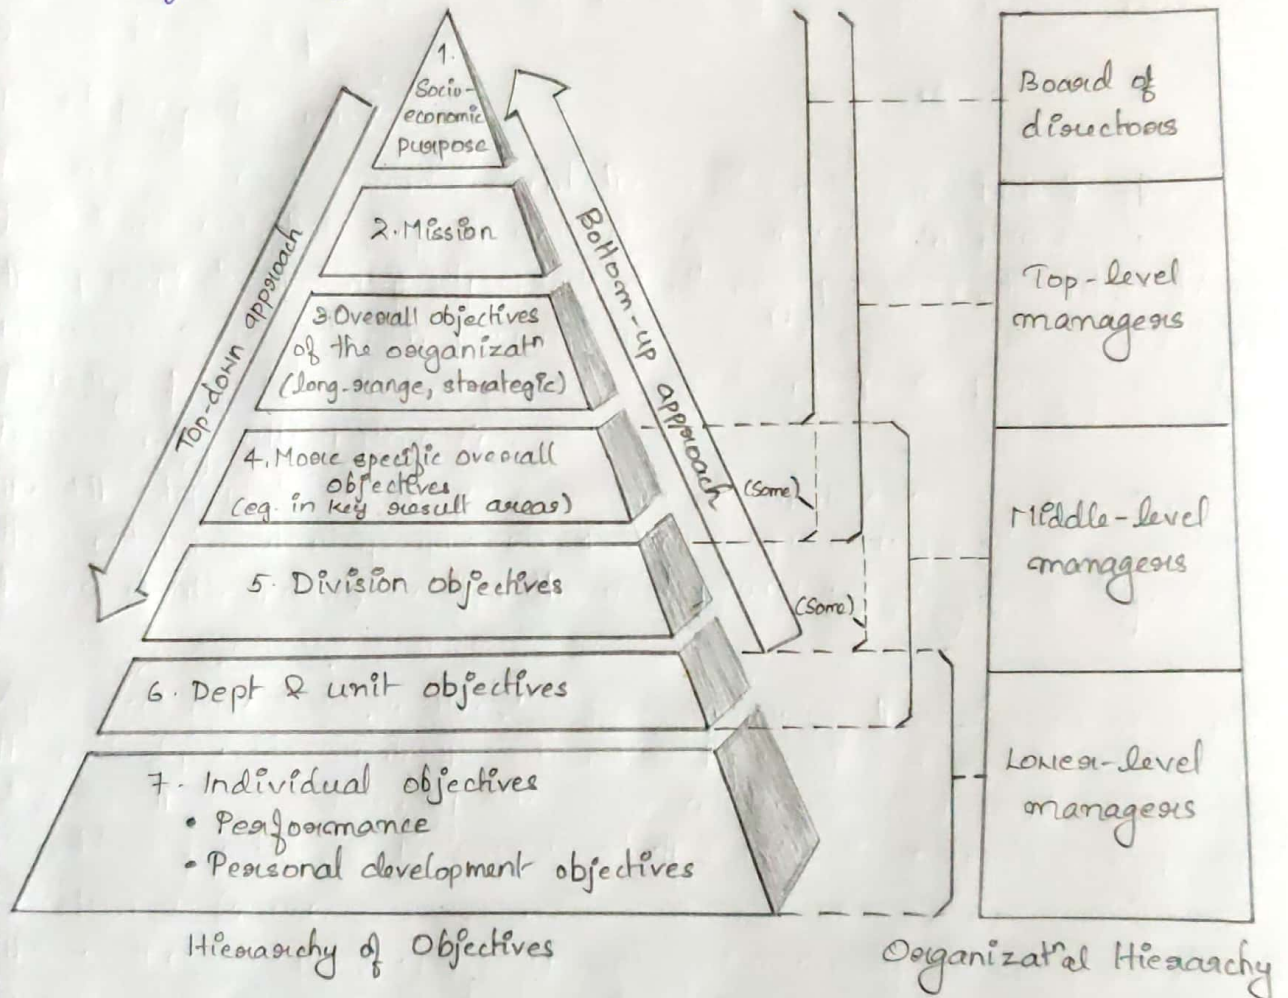 1.
Socio-
economic
purpose
2. Mission
3. Overall objectives
of the organizatⁿ
(long-range, strategic)
4. More specific overall
objectives
(eg. in key result areas)
5. Division objectives
6. Dept & unit objectives
7. Individual objectives
• Performance
• Personal development objectives
Hierarchy of Objectives
Top-down approach
Bottom-up approach
(Some)
(Some)
Board of
directors
Top-level
managers
Middle-level
managers
Lower-level
managers
Organizatⁿal Hierarchy